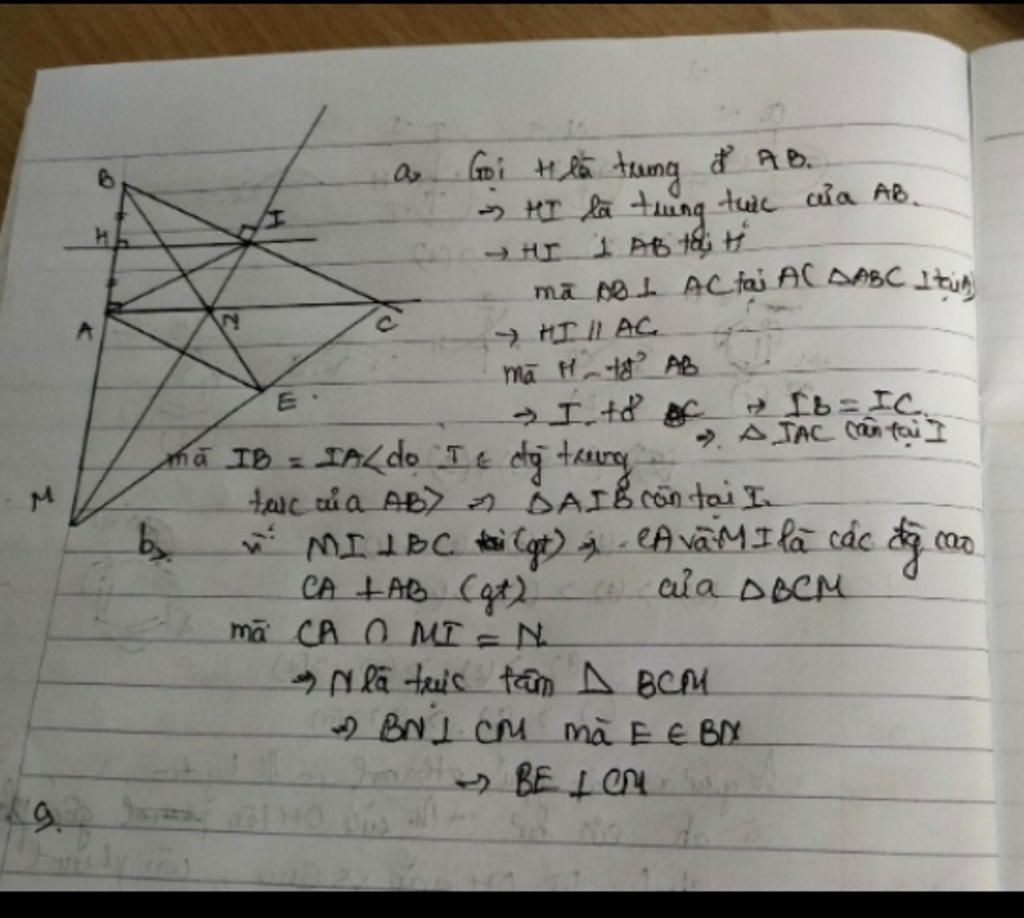 B
H
I
A
N
C
E
M
a, Gọi H là trung đ' AB.
→ HI là trung trực của AB.
→ HI ⊥ AB tại H
mà AB ⊥ AC tại A( ΔABC ⊥ tại A)
→ HI // AC
mà H - tđ' AB
→ I - tđ' BC → IB = IC.
→ Δ IAC cân tại I
mà IB = IA<do I ∈ đg trung
trực của AB> → ΔAIB cân tại I.
b, vì MI ⊥ BC (gt) → CA và MI là các đg cao
CA ⊥ AB (gt) của ΔBCM
mà CA ∩ MI = N
→ N là trực tâm Δ BCM
→ BN ⊥ CM mà E ∈ BN
→ BE ⊥ CM
9.